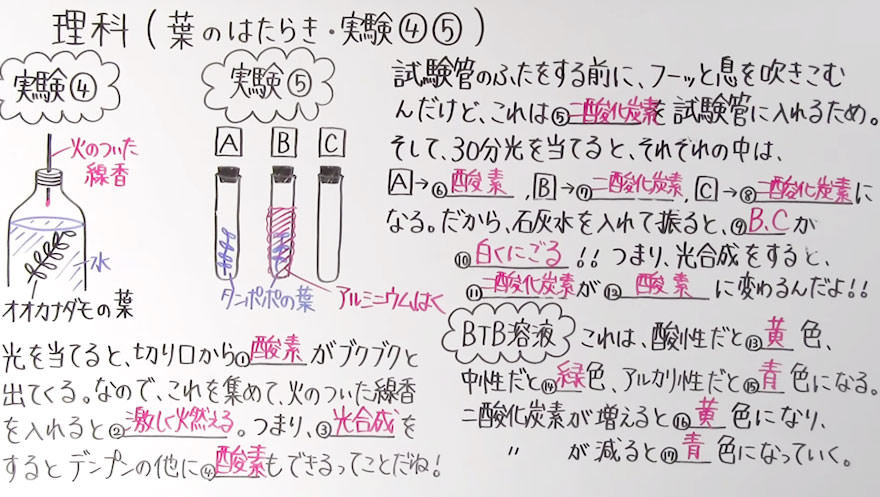 理科(葉のはたらき・実験④⑤)
実験④
火のついた
線香
水
オオカナダモの葉
光を当てると、切り口から①酸素がブクブクと
出てくる。なので、これを集めて、火のついた線香
を入れると②激しく燃える。つまり、③光合成を
するとデンプンの他に④酸素もできるってことだね!
実験⑤
A B C
タンポポの葉
アルミニウムはく
試験管のふたをする前に、フーッと息を吹きこむ
んだけど、これは⑤二酸化炭素を試験管に入れるため。
そして、30分光を当てると、それぞれの中は、
A→⑥酸素、B→⑦二酸化炭素、C→⑧二酸化炭素に
なる。だから、石灰水を入れて振ると、⑨B、Cが
⑩白くにごる!! つまり、光合成をすると、
⑪二酸化炭素が⑫酸素に変わるんだよ!!
BTB溶液 これは、酸性だと⑬黄色、
中性だと⑭緑色、アルカリ性だと⑮青色になる。
二酸化炭素が増えると⑯黄色になり、
〃 が減ると⑰青色になっていく。